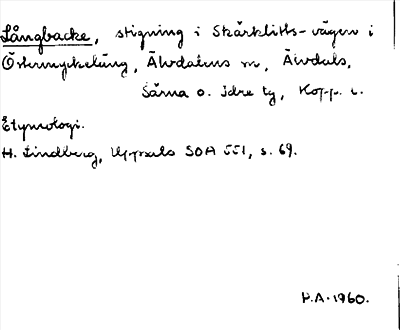 Långbacke, stigning i Skårklitts-vägen i
Östermyckeläng, Älvdalens sn, Älvdals,
Särna o. Idre tg, Kopp. l.
Etymologi.
H. Lindberg, Uppsats SOÄ 551, s. 69.
H.A. 1960.